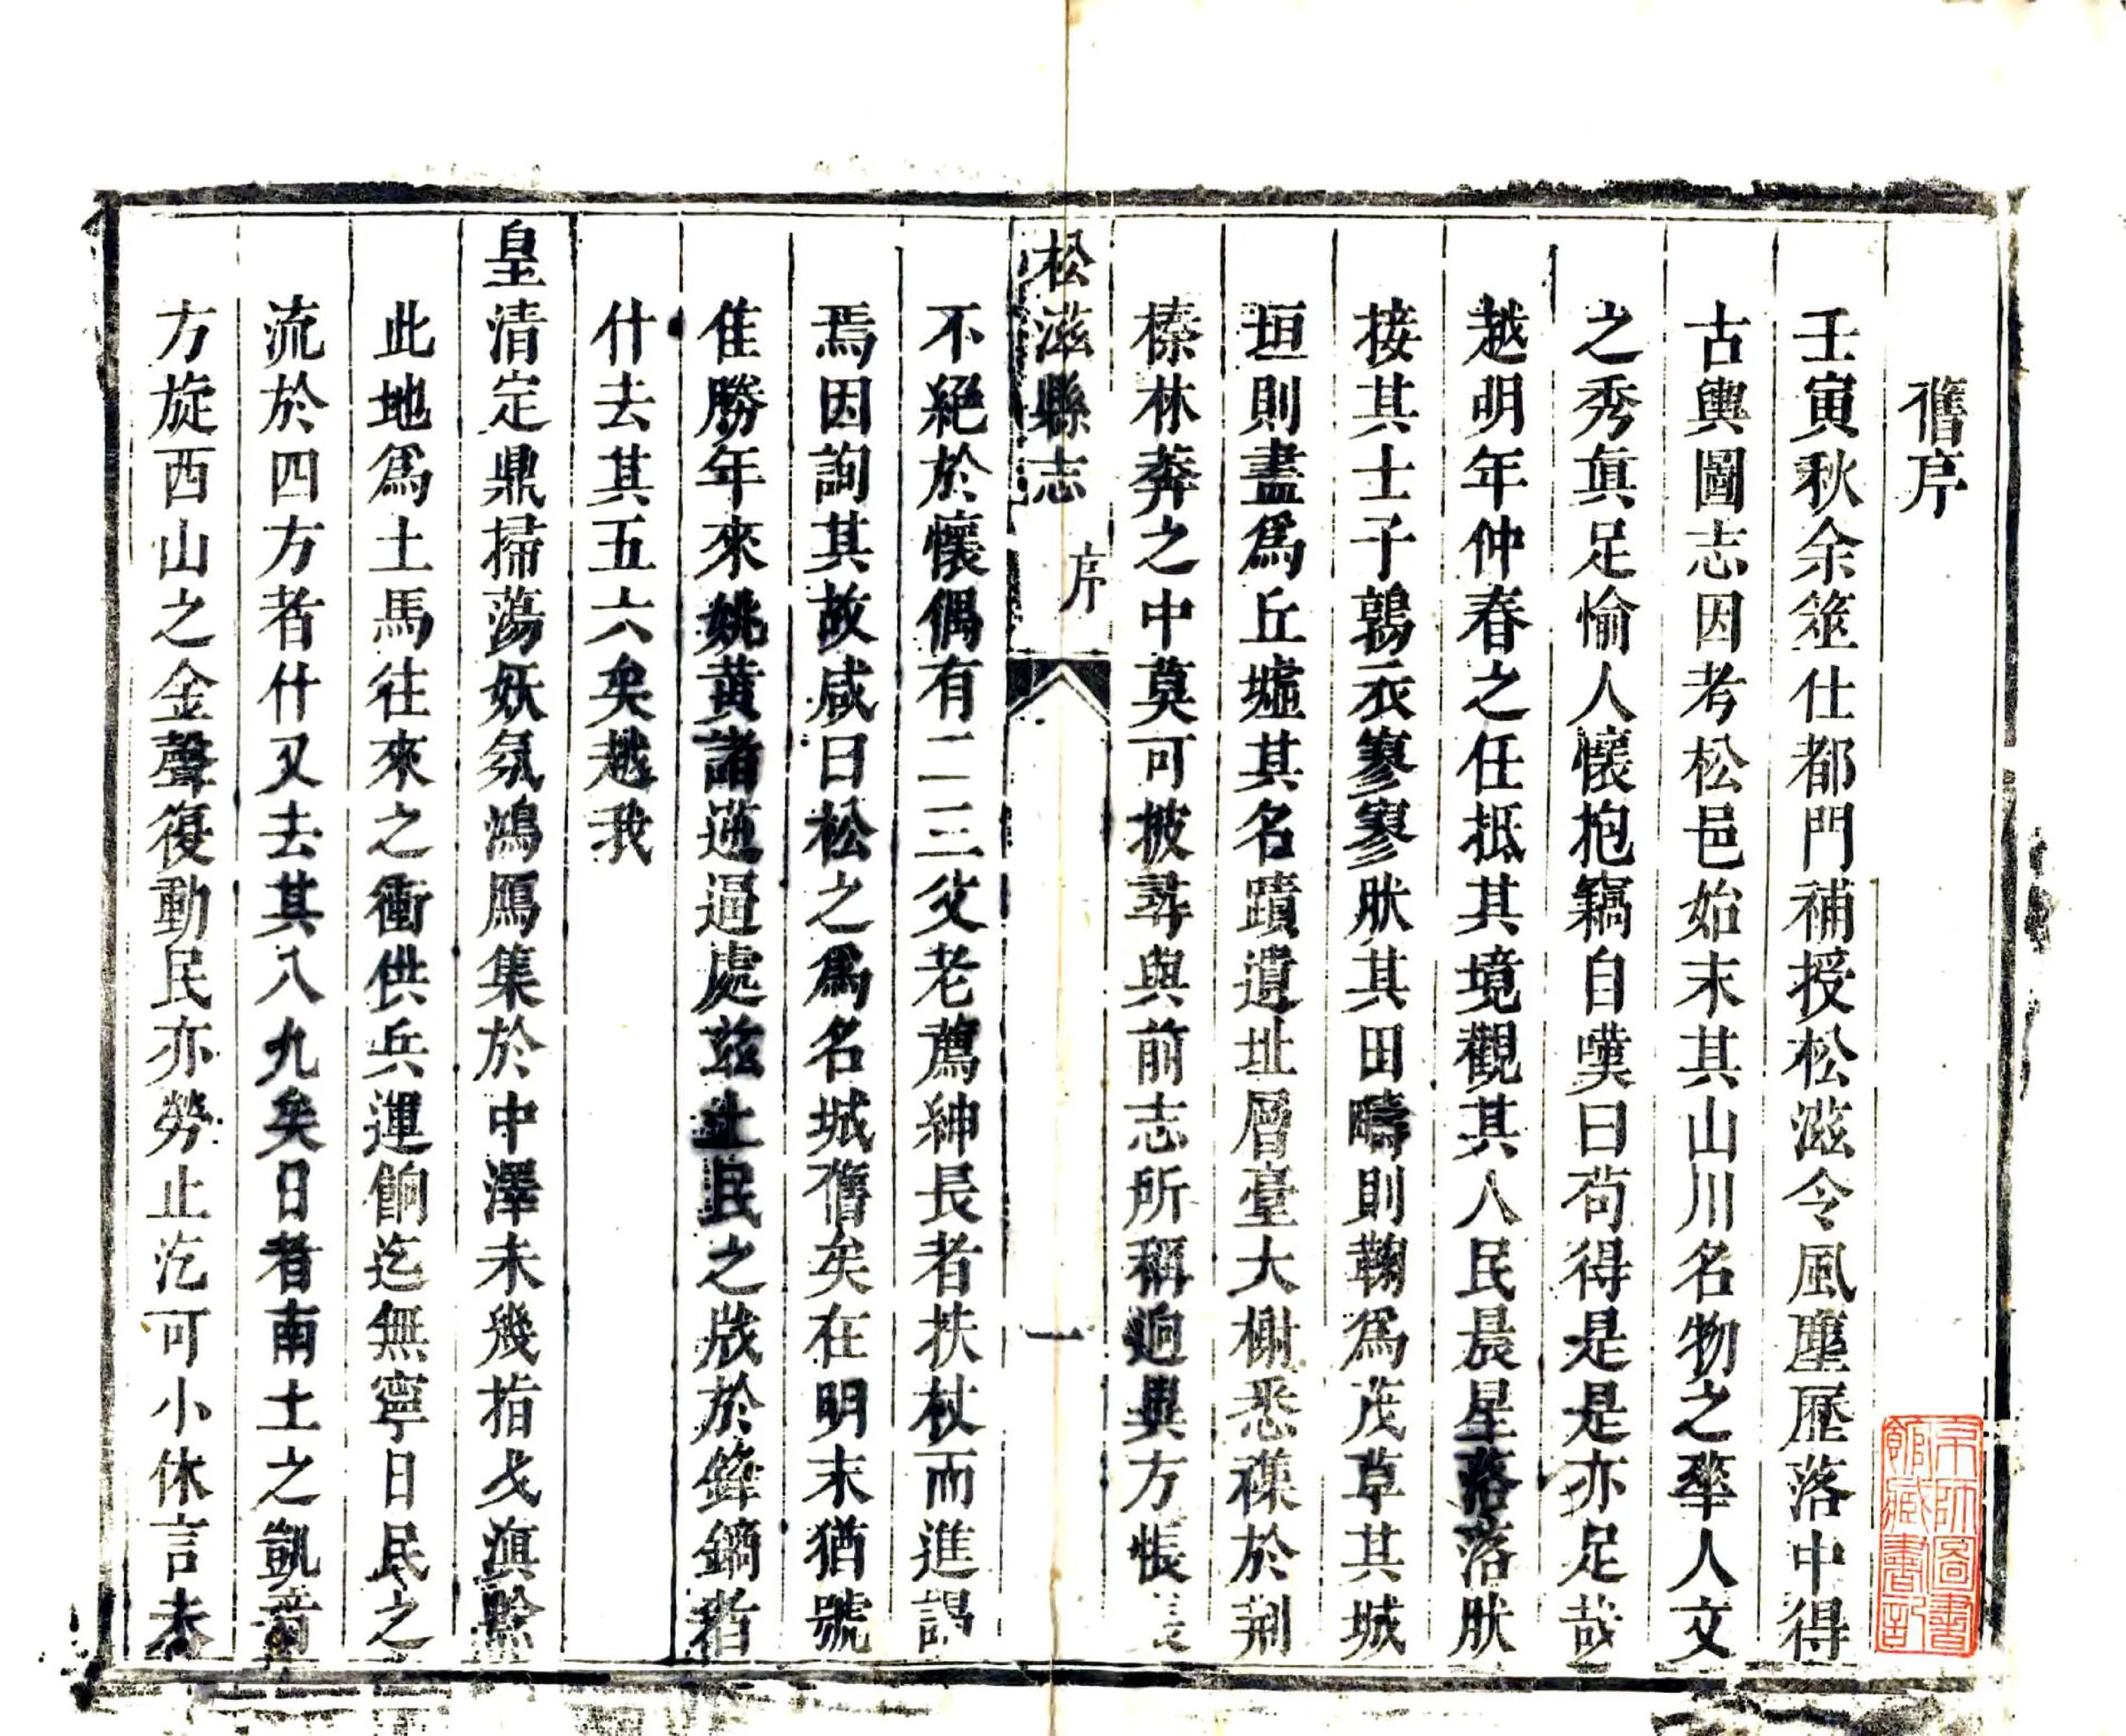 舊序
壬寅秋余筮仕都門補授松滋令風塵歷落中得
古輿圖志因考松邑始末其山川名物之華人文
之秀眞足愉人懷抱竊自嘆曰苟得是是亦足哉
越明年仲春之任抵其境觀其人民晨星落落肰
接其士子鶉衣寥寥肰其田疇則鞠爲茂草其城
垣則盡爲丘墟其名蹟遺址層臺大榭悉蕪於荆
榛林莽之中莫可披尋與前志所稱逈異方悵
松滋縣志 序 一
不絕於懷偶有二三父老薦紳長者扶杖而進謁
焉因詢其故咸曰松之爲名城舊矣在明末猶號
隹勝年來姚黃諸逋逼處兹土民之戕於鋒鏑者
什去其五六矣越我
皇清定鼎掃蕩妖氛鴻鴈集於中澤未幾指戈滇黔
此地爲土馬往來之衝供兵運餉迄無寧日民之
流於四方者什又去其八九矣日者南土之凱章
方旋西山之金聲復動民亦勞止汔可小休言者
京師圖書館藏書記